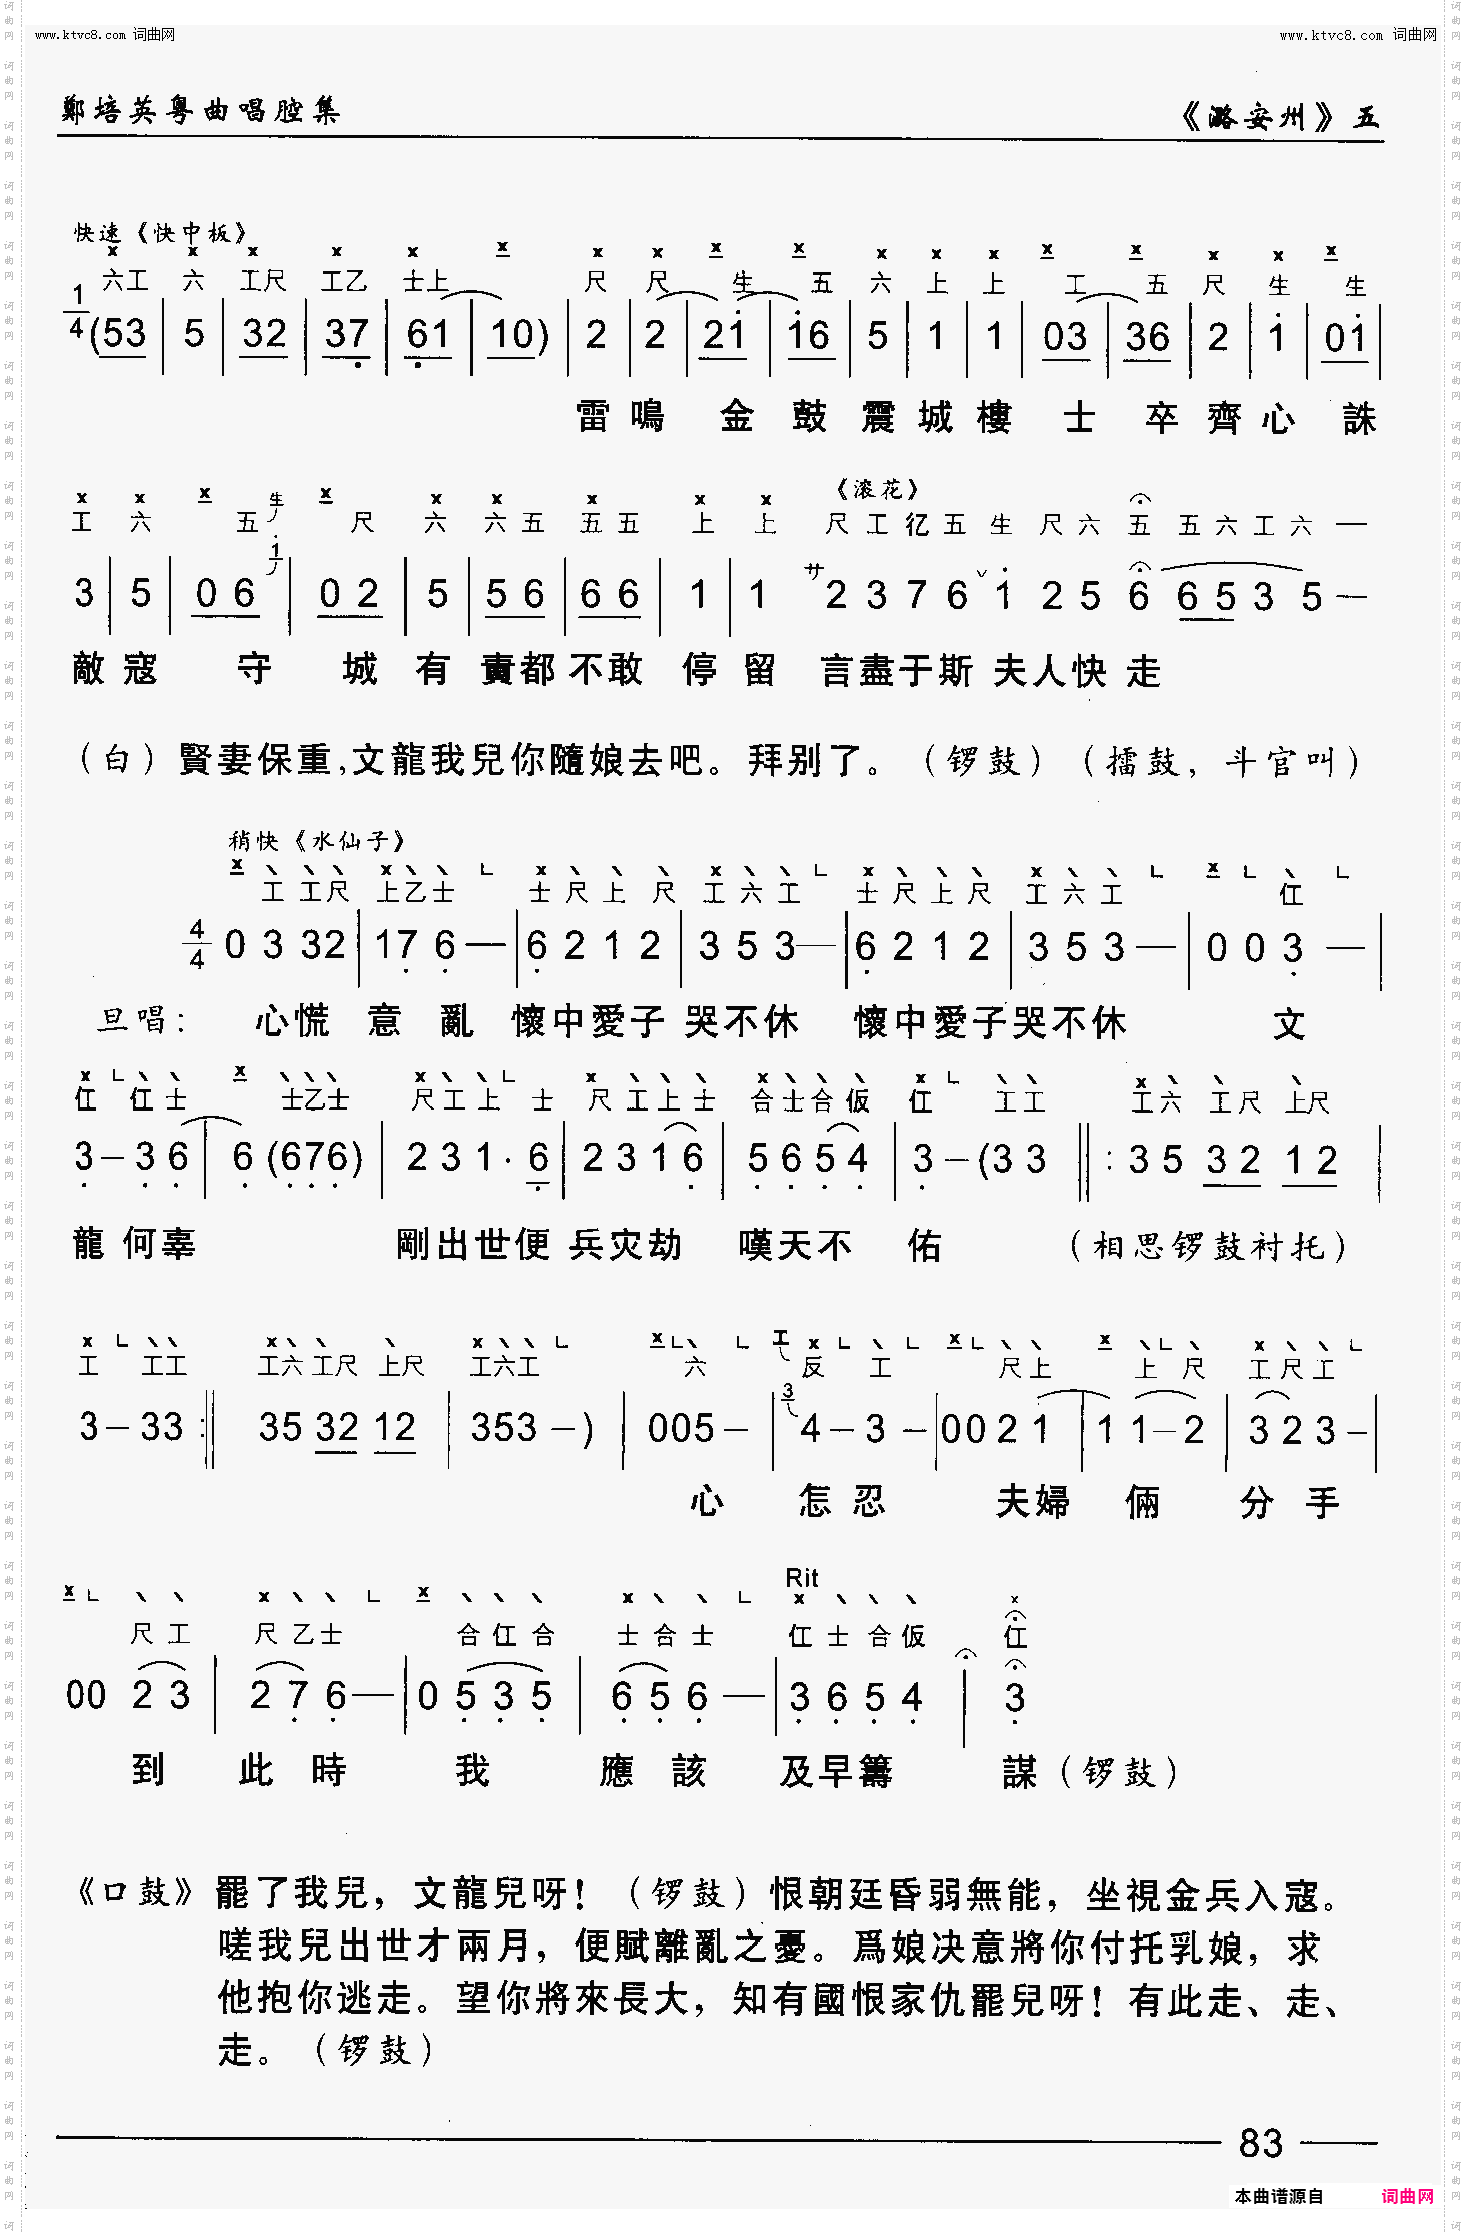 www.ktvc8.com 词曲网 www.ktvc8.com 词曲网
鄭培英粤曲唱腔集 《潞安州》五
快速《快中板》
六工 六 工尺 工乙 士上 尺 尺 生 五 六 上 上 工 五 尺 生 生
1/4 (53 | 5 | 32 | 37 | 61 | 10) | 2 | 2 | 21 | 16 | 5 | 1 | 1 | 03 | 36 | 2 | 1 | 01 |
雷鳴 金 鼓 震 城 樓 士 卒 齊 心 誅
《滚花》
工 六 五 生 尺 六 六五 五五 上 上 尺工彳五生尺六五 五六工六 —
3 | 5 | 0 6 1 | 0 2 | 5 | 5 6 | 6 6 | 1 | 1 サ 2 3 7 6 ˅ 1 2 5 6 6 5 3 5 —
敵 寇 守 城 有 責都 不敢 停 留 言盡于斯 夫人快 走
（白）賢妻保重,文龍我兒你隨娘去吧。拜别了。（锣鼓）（擂鼓，斗官叫）
稍快《水仙子》
工 工尺 上乙士 士尺上尺 工六工 士尺上尺 工六工 仜
4/4 0 3 32 | 17 6 — | 6 2 1 2 | 3 5 3 — | 6 2 1 2 | 3 5 3 — | 0 0 3 — |
旦唱： 心慌 意 亂 懷中愛子 哭不休 懷中愛子哭不休 文
仜 仜士 士乙士 尺工上 士 尺工上士 合士合仮 仜 工工 工六 工尺 上尺
3 — 3 6 | 6 (676) | 2 3 1 · 6 | 2 3 1 6 | 5 6 5 4 | 3 — (3 3 ‖: 3 5 3 2 1 2 |
龍 何辜 剛出世便 兵灾劫 嘆天不 佑 （相思锣鼓衬托）
工 工工 工六工尺 上尺 工六工 六 工 反 工 尺上 上 尺 工尺工
3 — 33 :‖ 35 32 12 | 353 — ) | 005 — | 3 4 — 3 — | 00 2 1 | 1 1 — 2 | 3 2 3 — |
心 怎忍 夫婦 倆 分 手
Rit
尺工 尺乙士 合仜合 士合士 仜士合仮 仜
00 2 3 | 2 7 6 — | 0 5 3 5 | 6 5 6 — | 3 6 5 4 | 3
到 此 時 我 應 該 及早籌 謀（锣鼓）
《口鼓》罷了我兒，文龍兒呀！（锣鼓）恨朝廷昏弱無能，坐視金兵入寇。
嗟我兒出世才兩月，便賦離亂之憂。爲娘决意將你付托乳娘，求
他抱你逃走。望你將來長大，知有國恨家仇罷兒呀！有此走、走、
走。（锣鼓）
83
本曲谱源自 词曲网